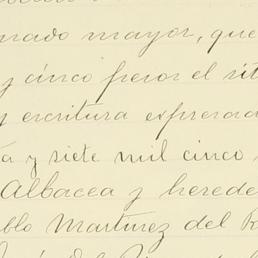 mado mayor, que
y cinco pesos el sit
y escritura expresad
ta y siete mil cinco
Albacea y herede
blo Martinez del R